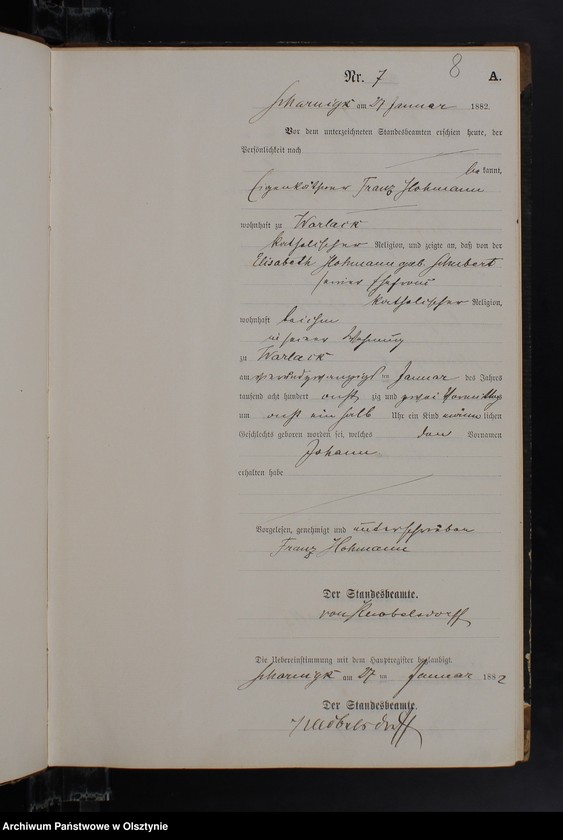 8
Nr. 7 A.
Scharnigk am 27 Januar 1882.
Vor dem unterzeichneten Standesbeamten erschien heute, der
Persönlichkeit nach
be kannt,
Eigenkäthner Franz Hohmann
wohnhaft zu Warlack
katholischer Religion, und zeigte an, daß von der
Elisabeth Hohmann geb. Schubert
seiner Ehefrau
katholischer Religion,
wohnhaft bei ihm
in seiner Wohnung
zu Warlack
am vierundzwanzigst en Januar des Jahres
tausend acht hundert acht zig und zwei Vormittag
um acht ein halb Uhr ein Kind männ lichen
Geschlechts geboren worden sei, welches den Vornamen
Johann
erhalten habe
Vorgelesen, genehmigt und unterschrieben
Franz Hohmann
Der Standesbeamte.
von Knobelsdorff
Die Uebereinstimmung mit dem Hauptregister beglaubigt.
Scharnigk am 27 en Januar 1882
Der Standesbeamte.
Knobelsdorff
Archiwum Państwowe w Olsztynie